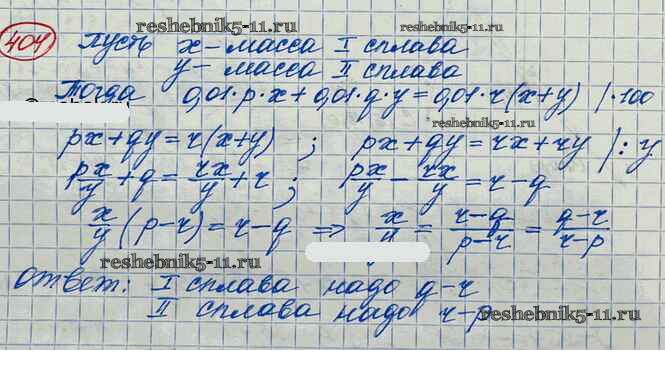 reshebnik5-11.ru reshebnik5-11.ru
404 Пусть x - масса I сплава
y - масса II сплава
Тогда 0,01·p·x+0,01·q·y=0,01·r(x+y) |·100
reshebnik5-11.ru
px+qy=r(x+y) ; px+qy=rx+ry |:y
px/y+q=rx/y+r ; px/y-rx/y=r-q
x/y(p-r)=r-q ⇒ x/y=r-q/p-r=q-r/r-p
reshebnik5-11.ru
Ответ: I сплава надо q-r
II сплава надо r-p
reshebnik5-11.ru reshebnik5-11.ru